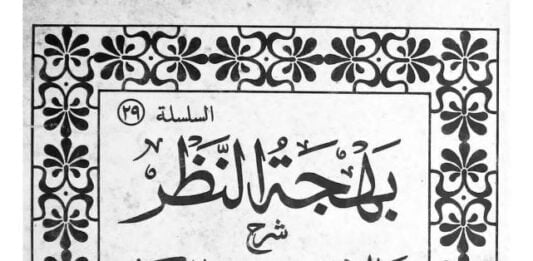 السلسلة ٢٩
بَهْجَةُ النَّظَرِ
شرح